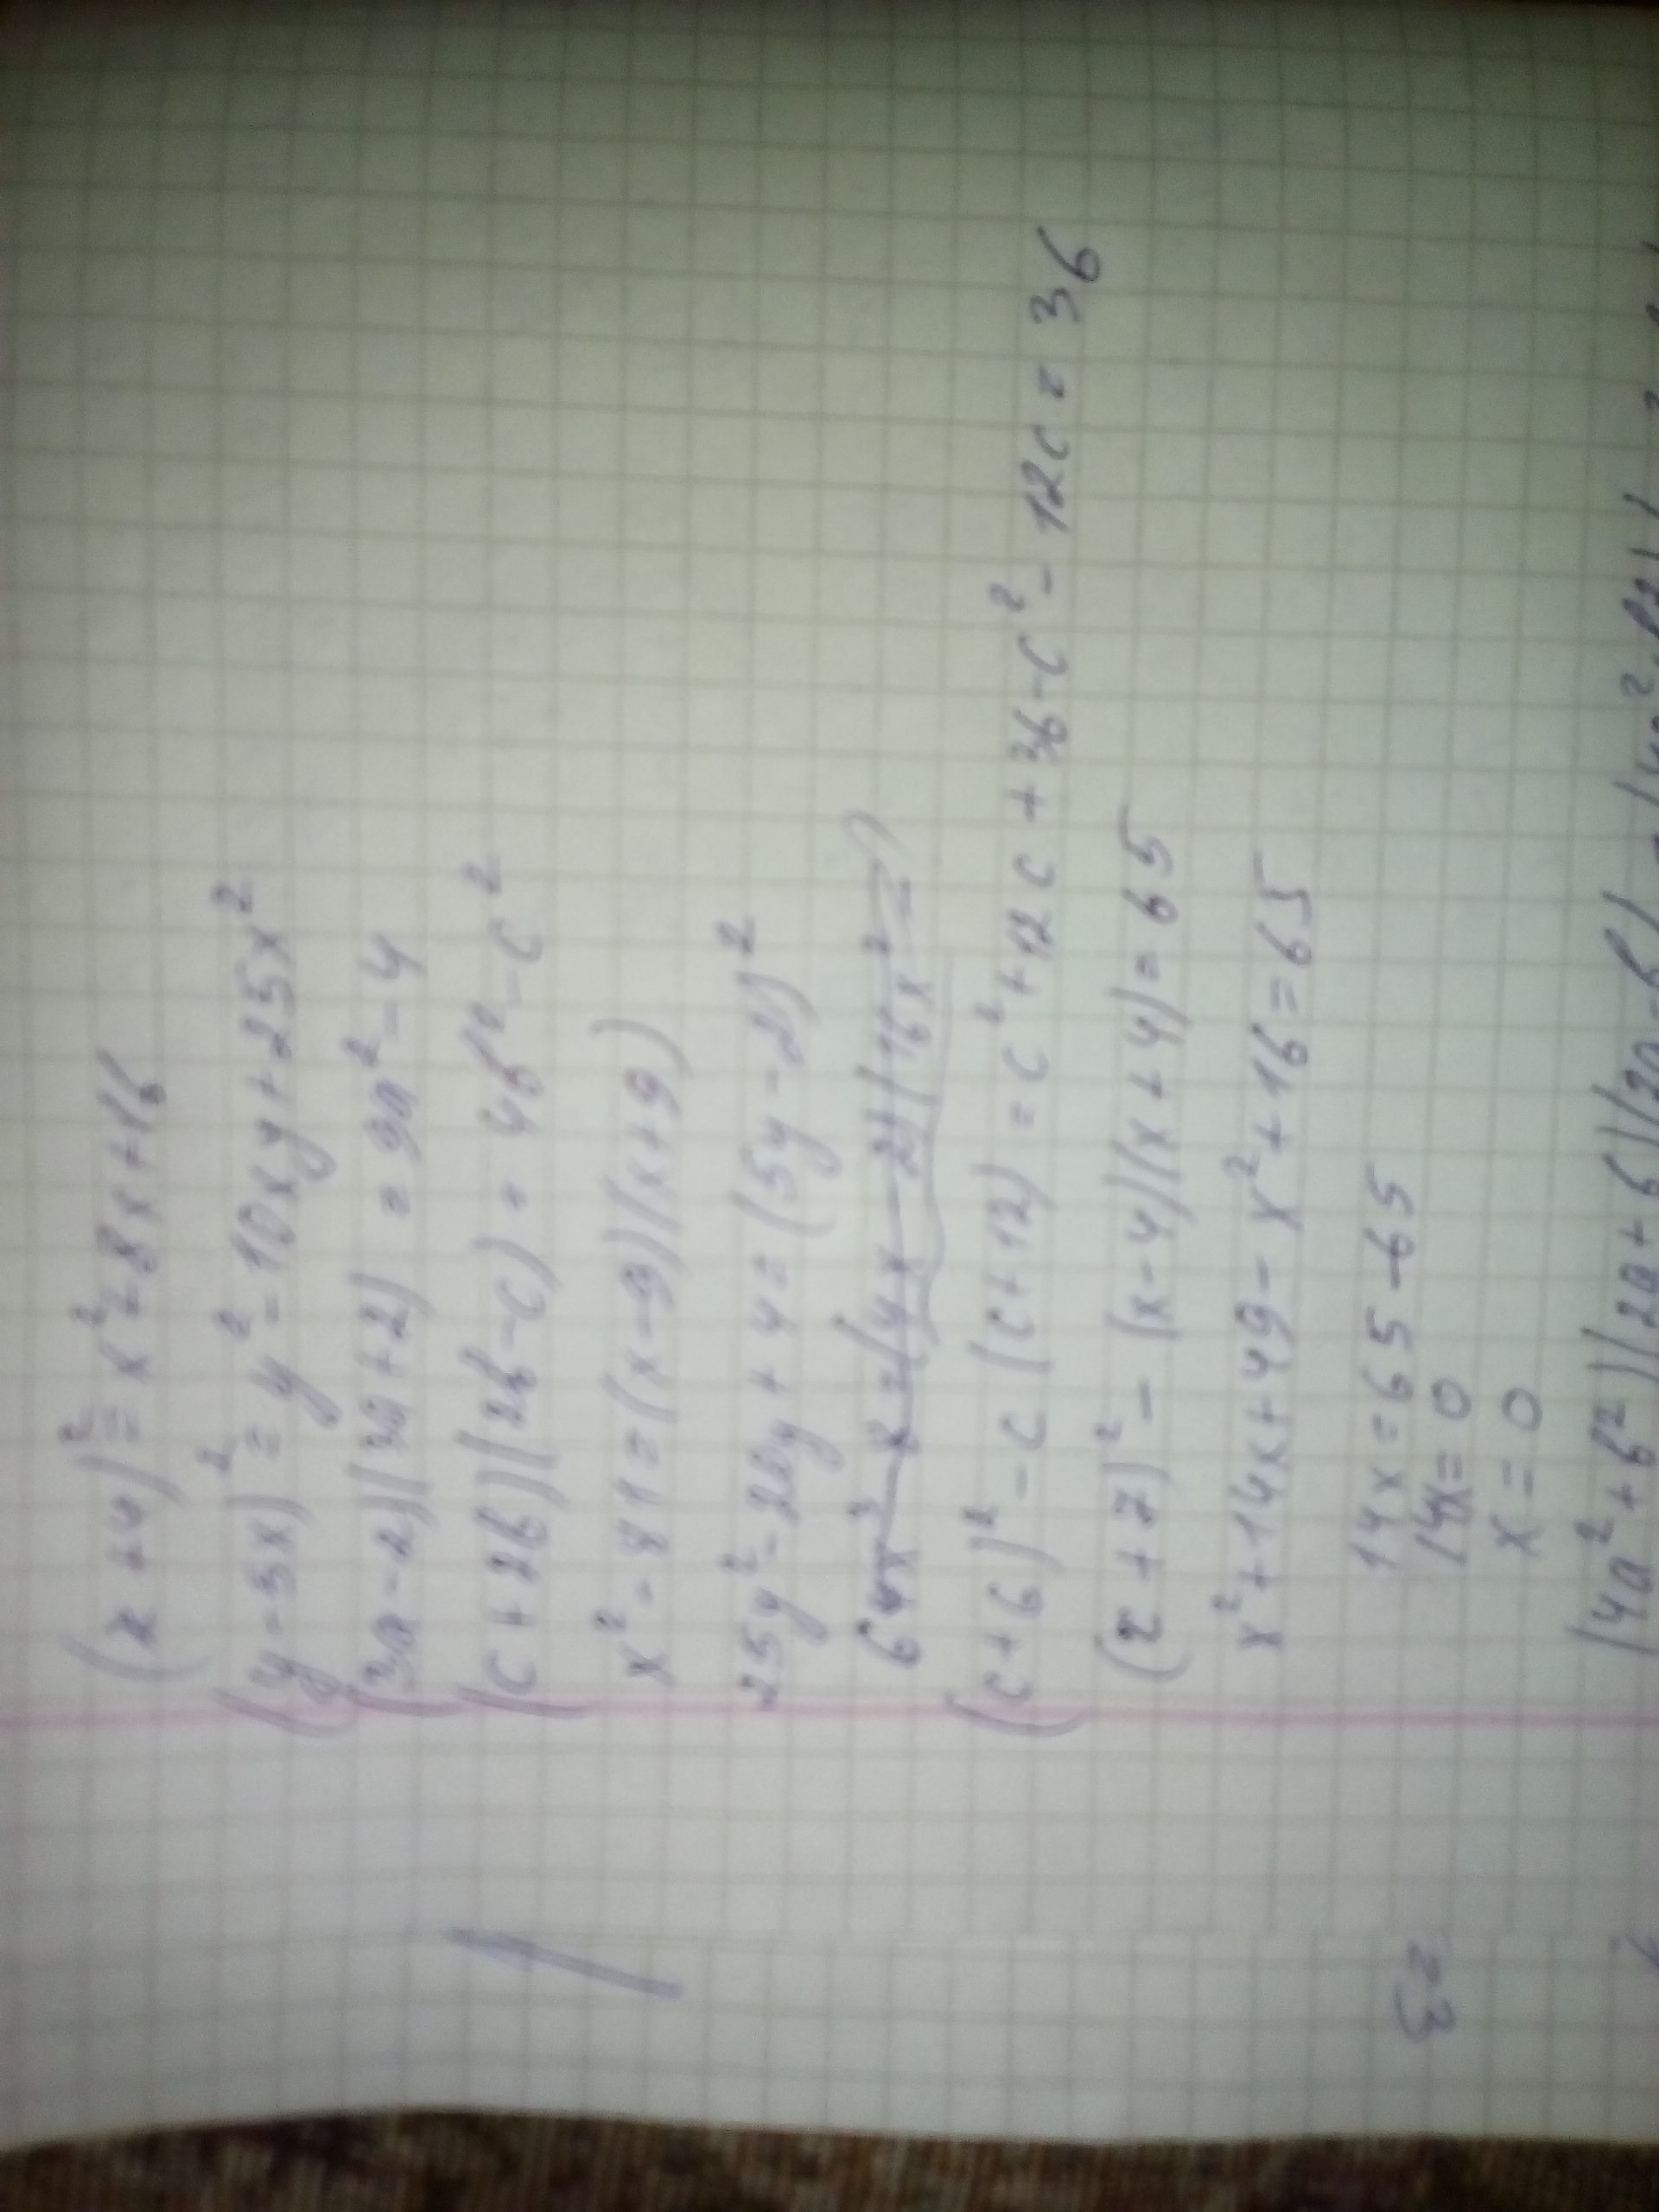 (x+4)² = x²+8x+16
(y-5x)² = y²-10xy+25x²
(3a-2)(3a+2) = 9a²-4
(c+2b)(2b-c) = 4b²-c²
x²-81=(x-9)(x+9)
25y²-20y+4=(5y-2)²
(c+6)²-c(c+12)=c²+12c+36-c²-12c=36
(x+7)²-(x-4)(x+4)=65
x²+14x+49-x²+16=65
14x=65-65
14x=0
x=0
(4a²+b²)(2a+b)(2a-b)